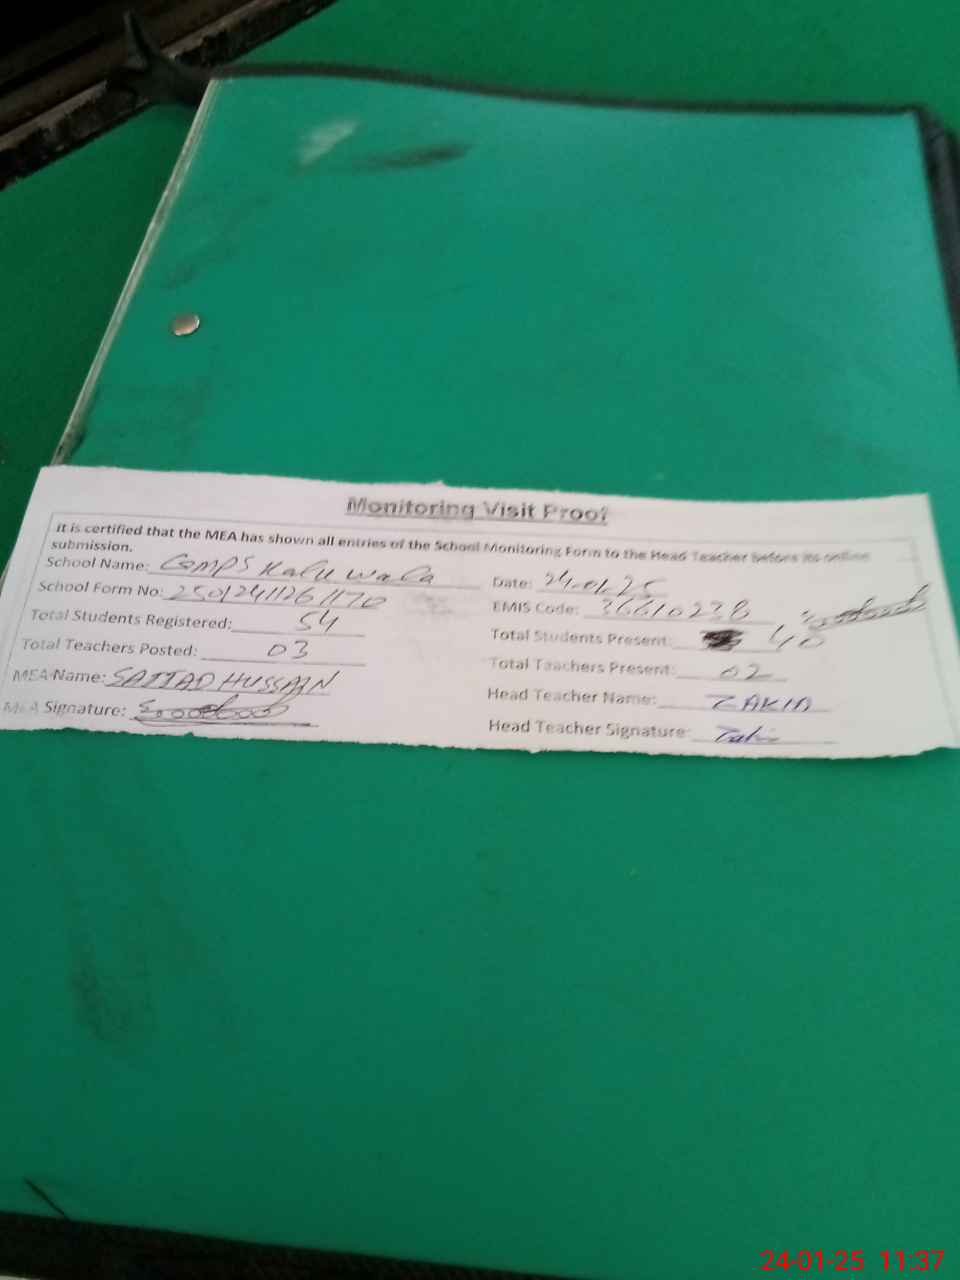 Monitoring Visit Proof
It is certified that the MEA has shown all entries of the School Monitoring Form to the Head Teacher before its online
submission.
School Name: GMPS Kalu Wala
Date: 24.01.25
School Form No: 25012411261170
EMIS Code: 36610238
Total Students Registered: 54
Total Students Present: 40
Total Teachers Posted: 03
Total Teachers Present: 02
MEA Name: SAJJAD HUSSAIN
Head Teacher Name: ZAKIA
MEA Signature:
Head Teacher Signature: Zakia
24-01-25 11:37